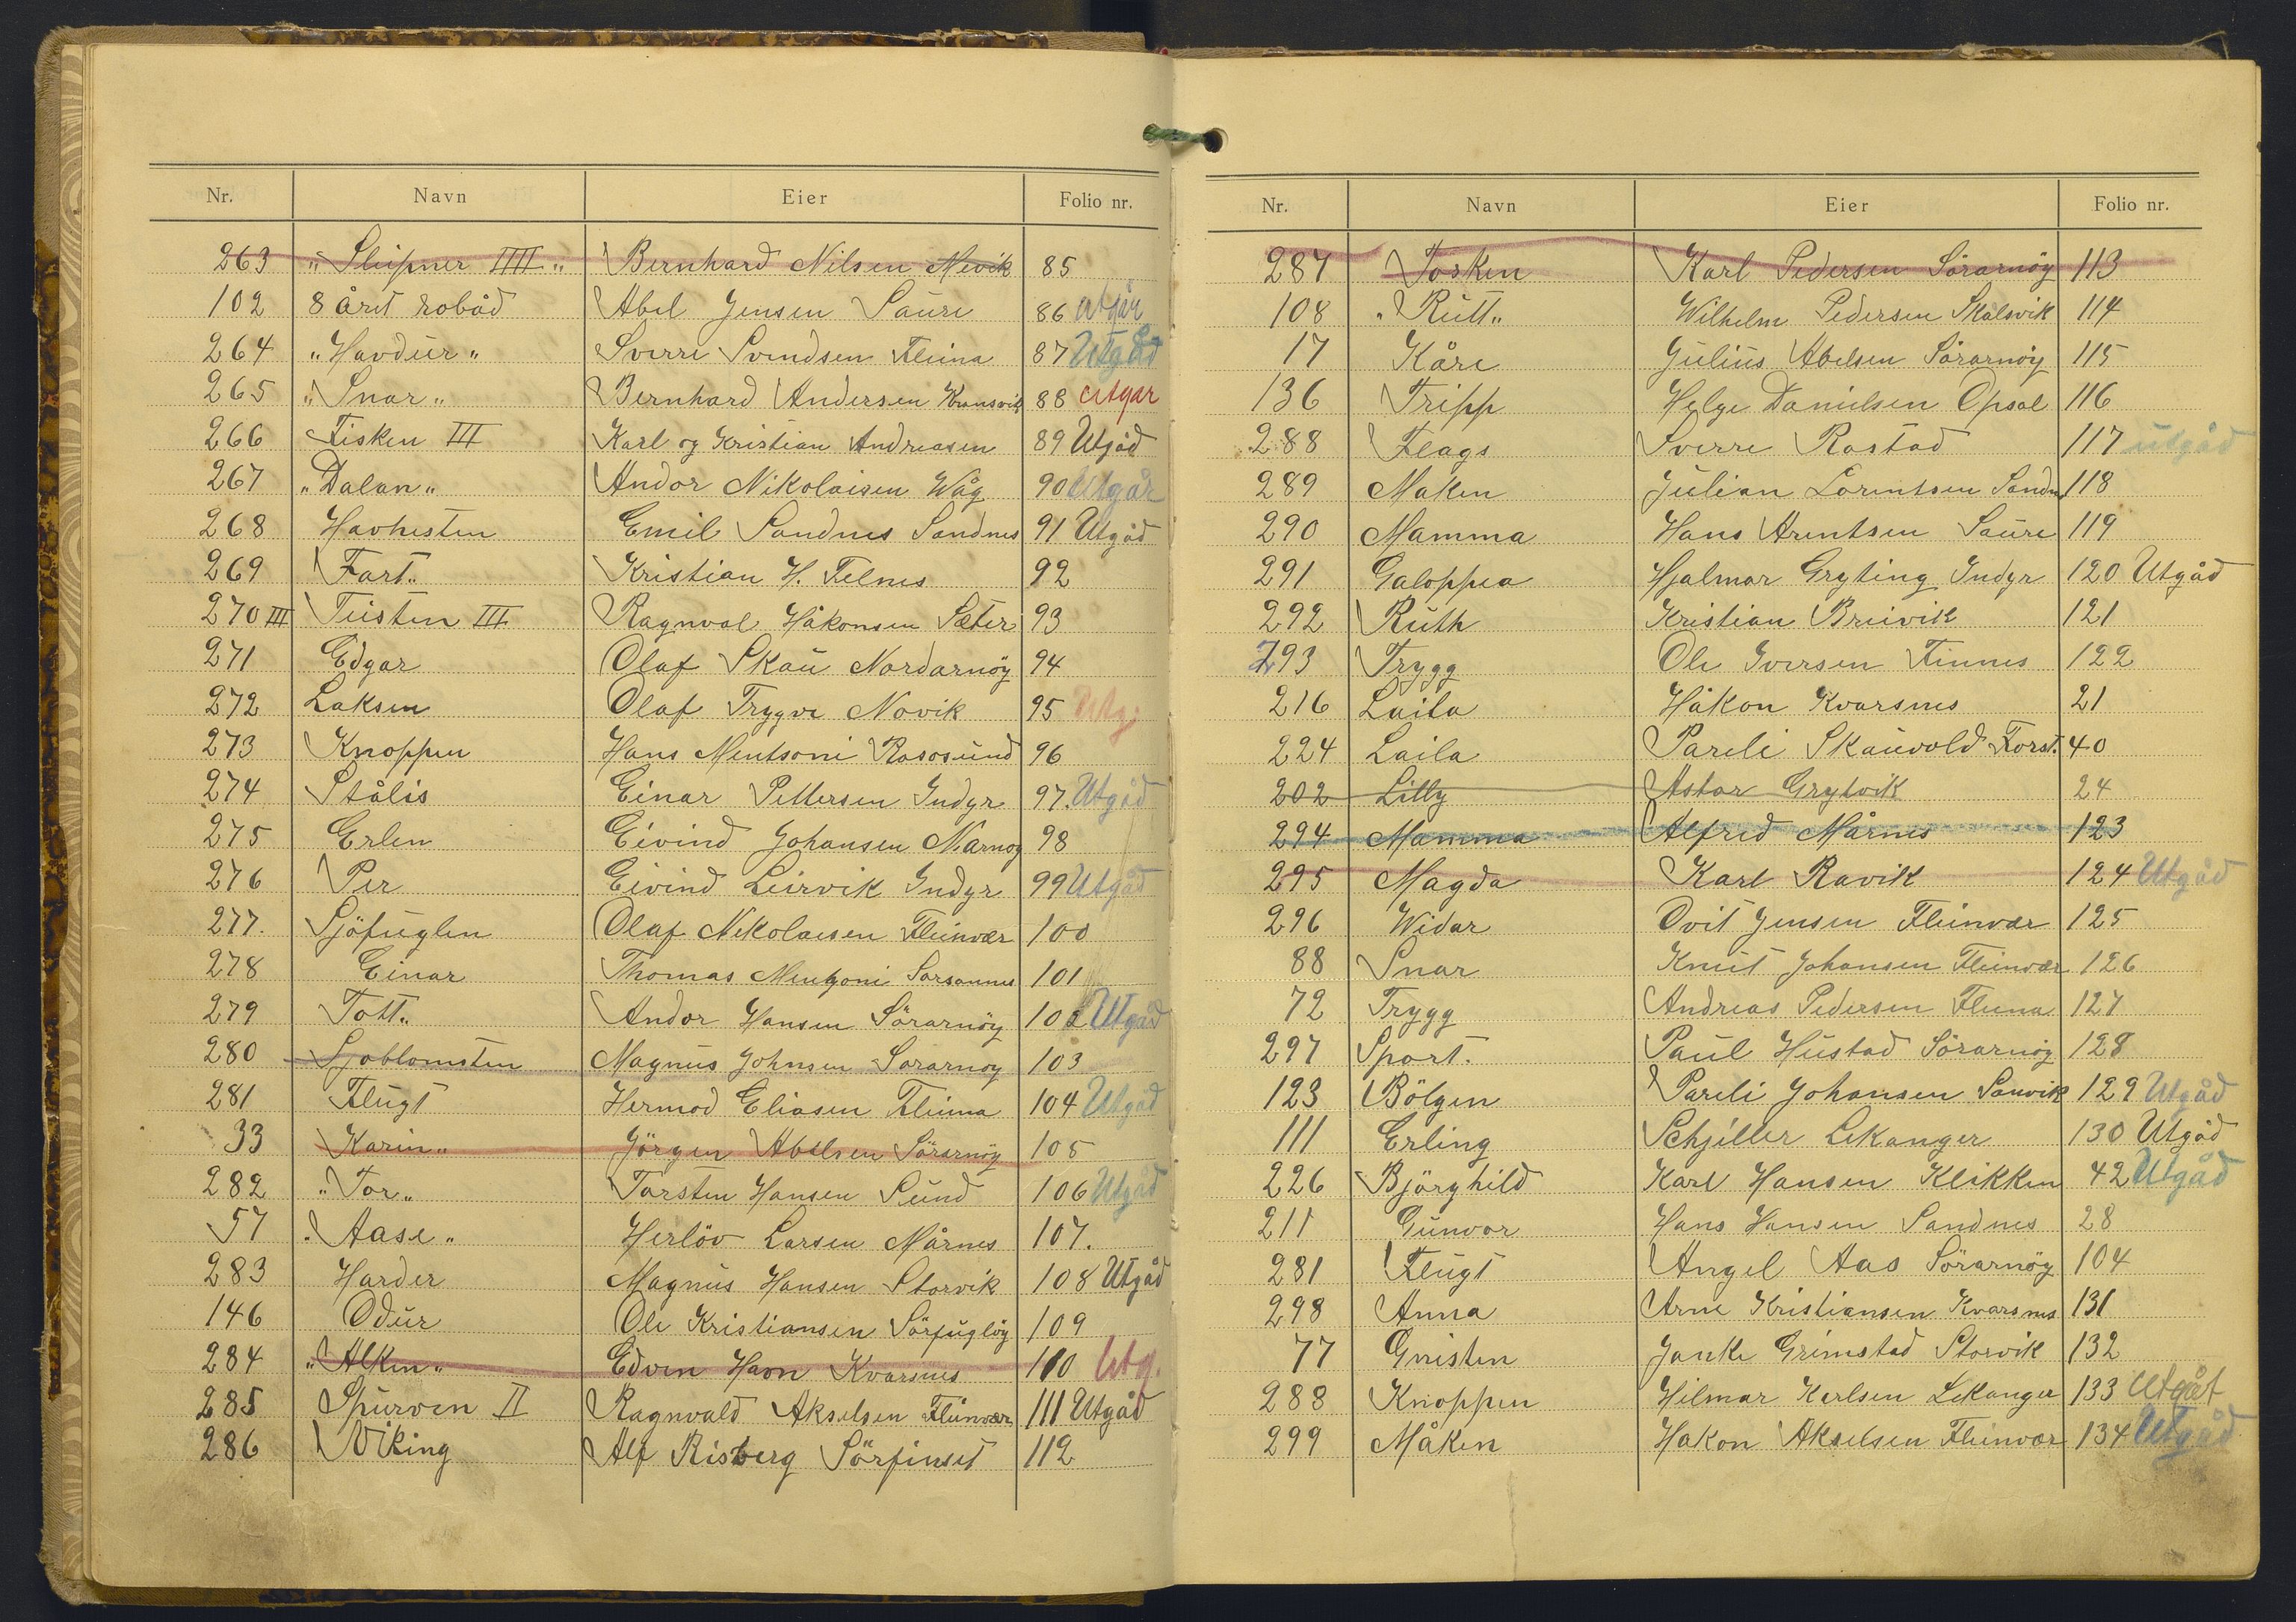 Nr. Navn Eier Folio nr.
263 "Sleipner IIII" Bernhard Nilsen Mevik 85
102 8 året robåd Abel Jensen Saure 86 utgår
264 "Havdur" Sverre Svendsen Fleina 87 Utgåd
265 "Snar" Bernhard Andersen Kvansvik 88 utgar
266 Fisken III Karl og Kristian Andreasen 89 Utgåd
267 "Dalan" Andor Nikolaisen Wåg 90 Utgår
268 Havhesten Emil Sandnes Sandnes 91 Utgåd
269 Fart" Kristian H. Felnes 92
270 III Teisten III Ragnval Håkonsen Sæter 93
271 Edgar Olaf Skau Nordarnöy 94
272 Laksen Olaf Tryggve Novik 95 Utg:
273 Knoppen Hans Mentsoni Rososund 96
274 Stålis Einar Pettersen Indyr 97. Utgåd
275 Erlen Eivind Johansen N.arnoy 98
276 Per Eivind Leirvik Indyr 99 Utgåd
277. Sjöfuglen Olaf Nikolaisen Fleinvær 100
278 Einar Thomas Mentzoni Sorsannes 101
279 Tott" Andor Hansen Sörarnöy 102 Utgåd
280 Sjoblomsten Magnus Johnsen Sorarnoy 103
281 Flugt Hermod Eliasen Fleina 104 Utgåd
33 Karin" Jörgen Abelsen Sörarnöy 105
282 "Tor" Torsten Hansen Sund 106 Utgåd
57 "Aase" Herlöv Larsen Mårnes 107.
283 Harder Magnus Hansen Storvik 108 Utgåd
146 Odur Ole Kristiansen Sörfuglöy 109
284 "Alken" Edvin Havn Kvarsnes 110 Utg.
285 Spurven II Ragnvald Akselsen Fleinvær 111 Utgåd
286 Viking Alf Risberg Sörfinset 112
Nr. Navn Eier Folio nr.
287 Torsken Karl Pedersen Sörarnöy 113
108 "Rutt" Wilhelm Pedersen Skålsvik 114
17 Kåre Julius Abelsen Sörarnöy 115
136 Tripp Helge Danielsen Opsal 116
288 Flags Sverre Rastad 117 utgåd
289 Maken Julian Lorentsen Sandn 118
290 Mamma Hans Arentsen Saure 119
291 Galoppea Hjalmar Gryting Indyr 120 Utgåd
292 Ruth Kristian Breivik 121
293 Trygg Ole Iversen Finnes 122
216 Laila Håkon Kvarsnes 21
224 Laila Pareli Skauvold Forst. 40
202 Lilly Astor Grytvik 24
294 Mamma Alfred Mårnes 123
295 Magda Karl Ravik 124 Utgåd
296 Widar Ovit Jensen Fleinvær 125
88 Snar Knut Johansen Fleinvær 126
72 Trygg Andreas Pedersen Fleina 127
297 Sport. Paul Hustad Sörarnöy 128
123 Bölgen Pareli Johansen Sauvik 129 Utgåd
111 Erling Schjeller Lekanger 130 Utgåd
226 Björghild Karl Hansen Klikken 42 Utgåd
211 Gunvor Hans Hansen Sandnes 28
281 Flugt Angel Aas Sörarnöy 104
298 Anna Arne Kristiansen Kvarsnes 131
77 Gnisten Janke Grimstad Storvik 132
288 Knoppen Hilmar Karlsen Lekanger 133 Utgåt
299 Måken Håkon Akselsen Fleinvær 134 Utgåd